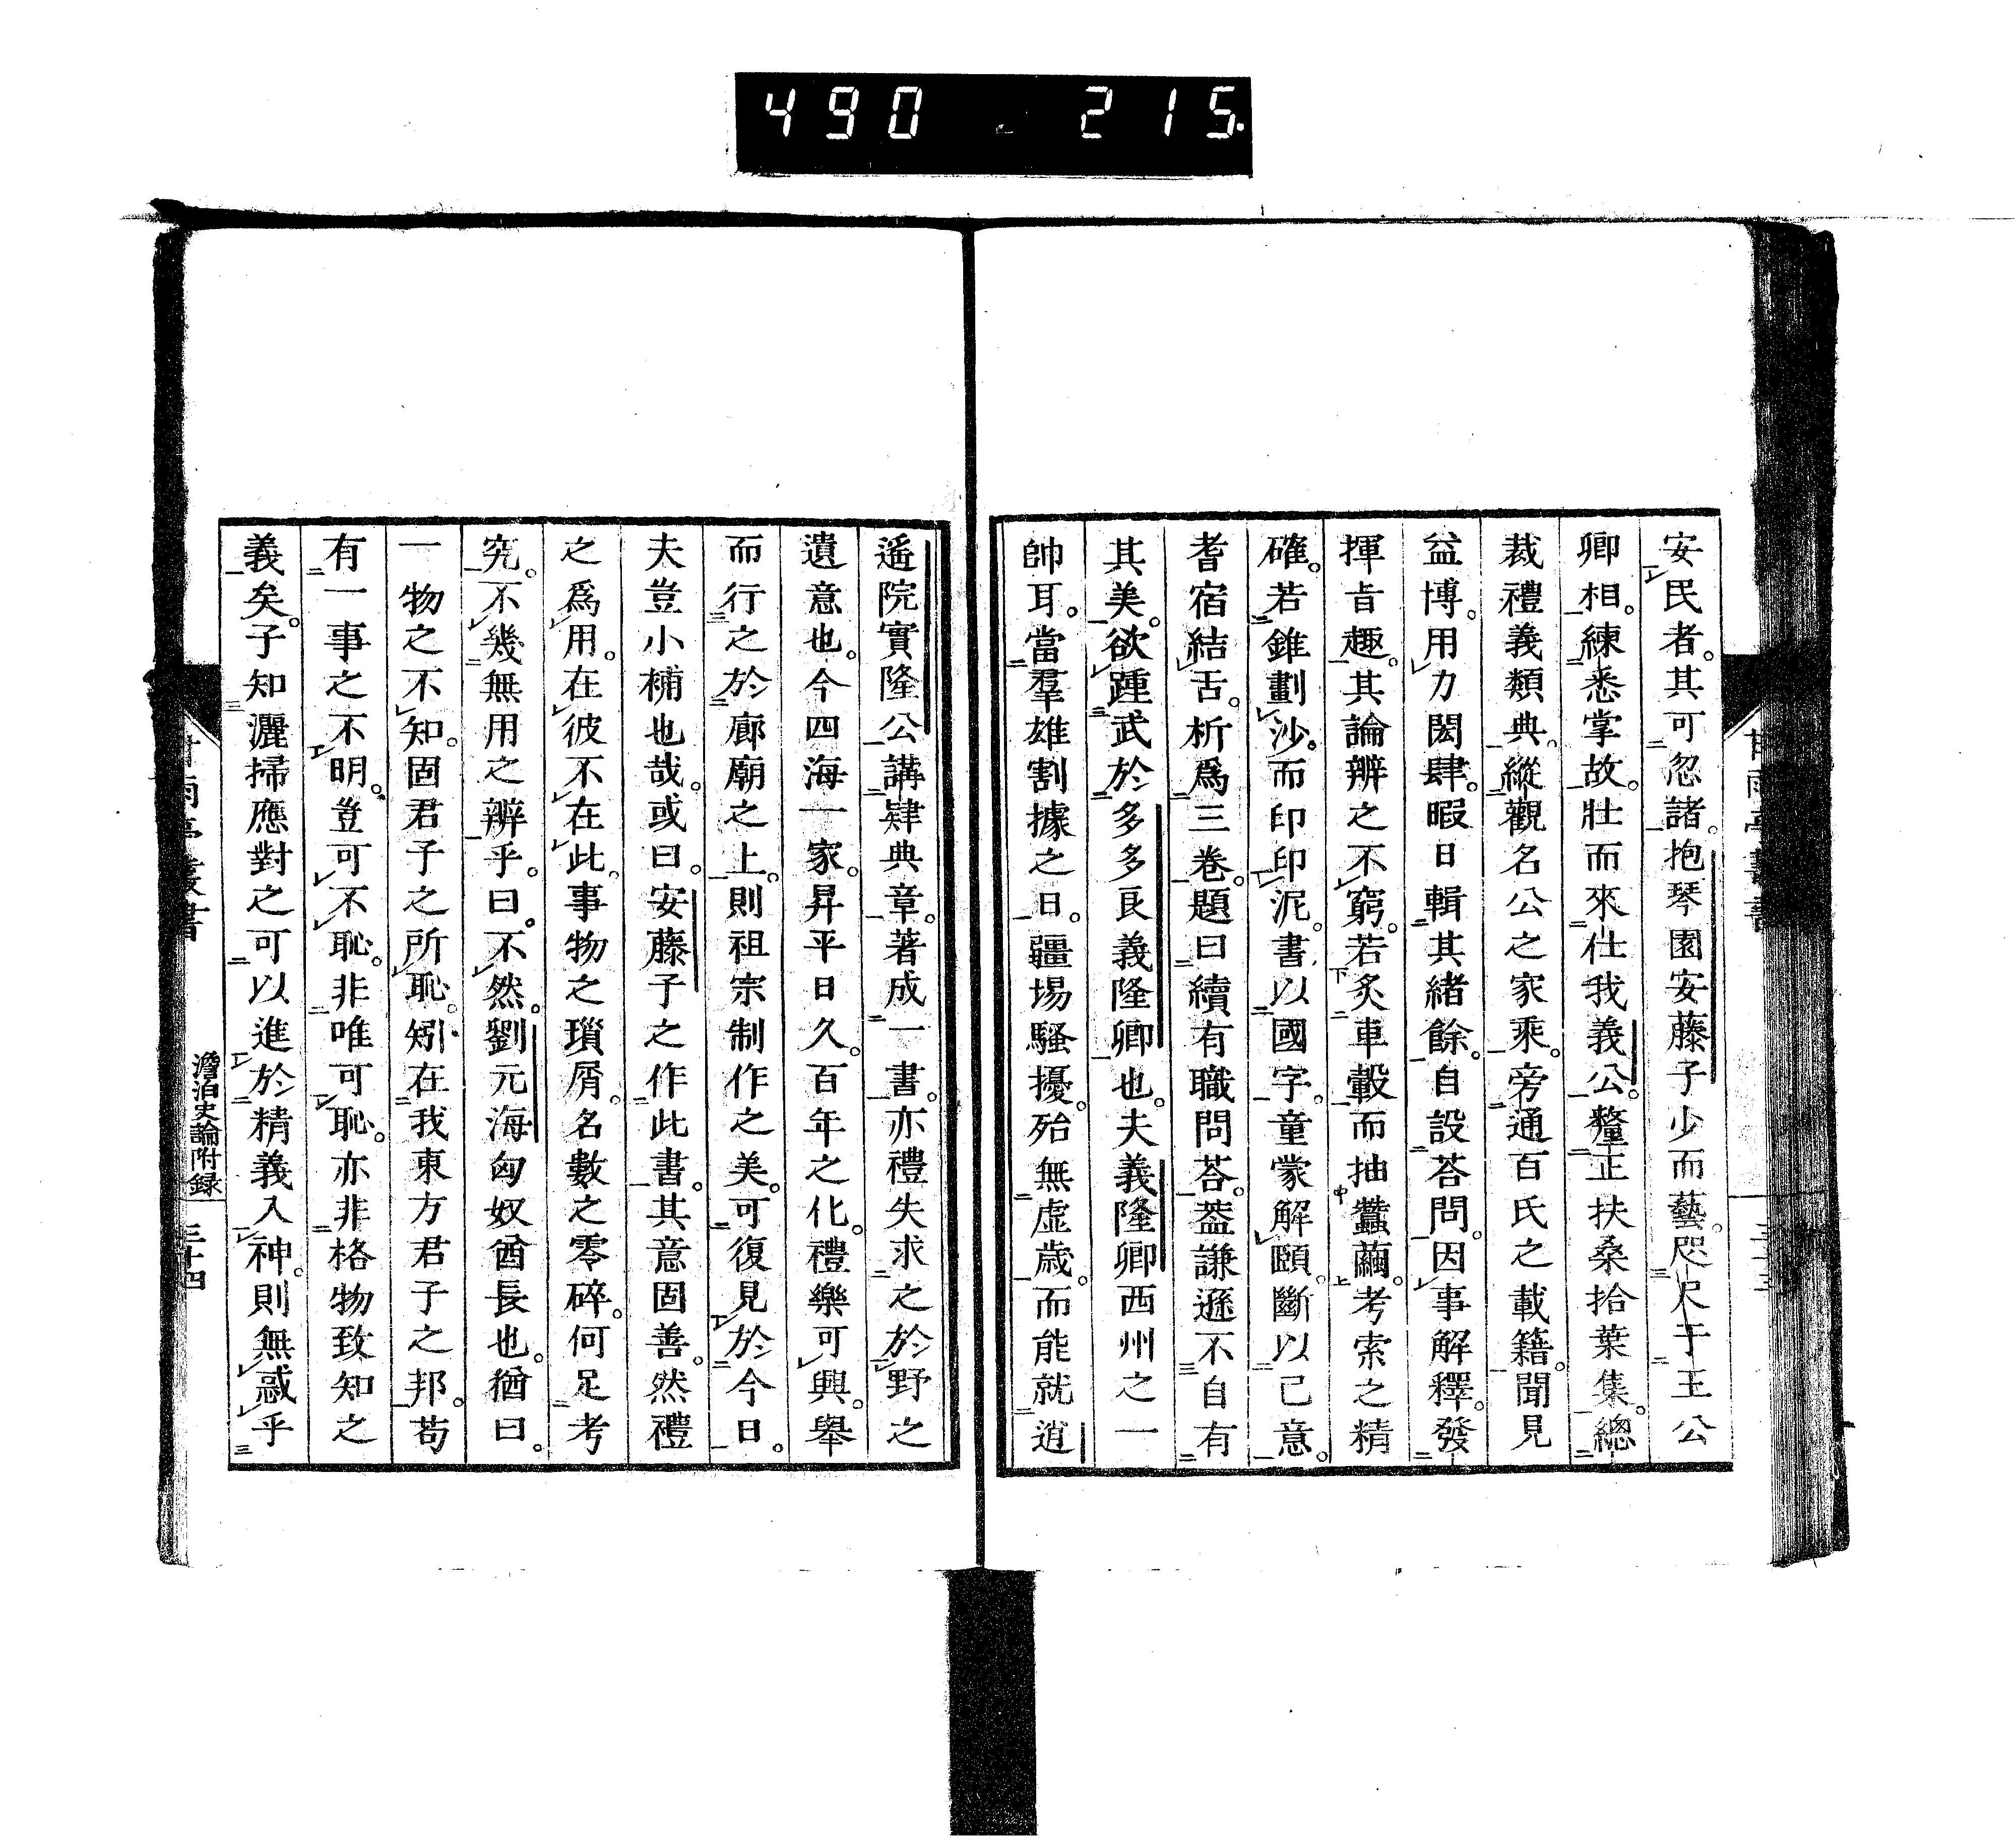 490 - 215.
安民者。其可忽諸。抱琴園安藤子少而藝。咫尺于王公
卿相。練悉掌故。壯而來仕我義公。釐正扶桑拾葉集。總
裁禮義類典。縱觀名公之家乘。旁通百氏之載籍。聞見
益博。用力閎肆。暇日輯其緒餘。自設荅問。因事解釋。發
揮旨趣。其論辨之不窮。若炙車轂而抽蠶繭。考索之精
確。若錐劃沙。而印印泥。書以國字。童蒙解頤。斷以己意。
耆宿結舌。析爲三卷。題曰續有職問荅。葢謙遜不自有
其美。欲踵武於多多良義隆卿也。夫義隆卿西州之一
帥耳。當羣雄割據之日。疆埸騷擾。殆無虛歲。而能就逍
遙院實隆公講肄典章。著成一書。亦禮失求之於野之
遺意也。今四海一家。昇平日久。百年之化。禮樂可興。舉
而行之於廊廟之上。則祖宗制作之美。可復見於今日。
夫豈小補也哉。或曰。安藤子之作此書。其意固善。然禮
之爲用。在彼不在此。事物之瑣屑。名數之零碎。何足考
究。不幾無用之辨乎。曰。不然。劉元海匈奴酋長也。猶曰。
一物之不知。固君子之所恥。矧在我東方君子之邦。苟
有一事之不明。豈可不恥。非唯可恥。亦非格物致知之
義矣。子知灑掃應對之可以進於精義入神。則無惑乎
甘雨亭叢書
澹泊史論附録
三十四